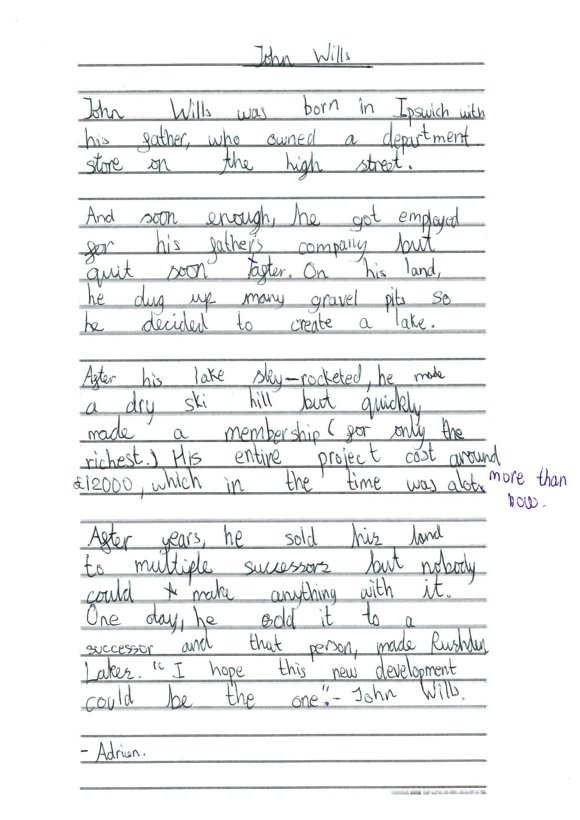 John Wills
John Wills was born in Ipswich with
his father, who owned a department
store on the high street.
And soon enough, he got employed
for his father's company but
quit soon after. On his land,
he dug up many gravel pits so
he decided to create a lake.
After his lake sky-rocketed, he made
a dry ski hill but quickly
made a membership (for only the
richest.) His entire project cost around
£12000, which in the time was alot more than
now.
After years, he sold his land
to multiple successors but nobody
could make anything with it.
One day, he sold it to a
successor and that person, made Rushden
Lakes. "I hope this new development
could be the one." - John Wills.
- Adrian.